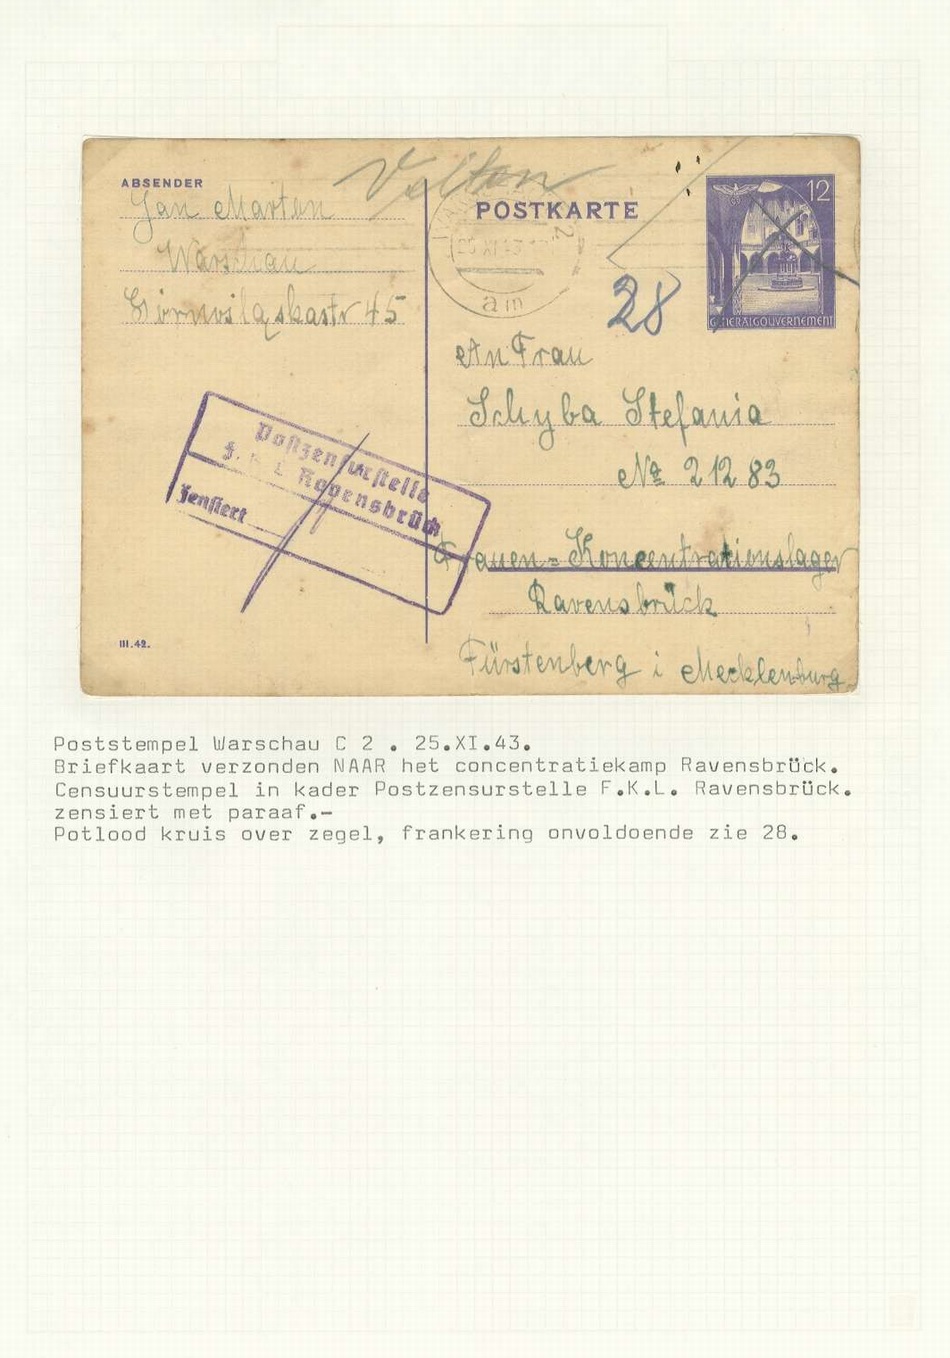 ABSENDER
Jan Marten
Warschau
45
Velten
POSTKARTE
am
28
12
GENERALGOUVERNEMENT
An Frau
Schyba Stefania
№ 21283
Frauen=Koncentrationslager
Ravensbrück
Fürstenberg i Mecklenburg
Postzensurstelle
F. K. L. Ravensbrück
Zensiert
III.42.
Poststempel Warschau C 2 . 25.XI.43.
Briefkaart verzonden NAAR het concentratiekamp Ravensbrück.
Censuurstempel in kader Postzensurstelle F.K.L. Ravensbrück.
zensiert met paraaf.-
Potlood kruis over zegel, frankering onvoldoende zie 28.